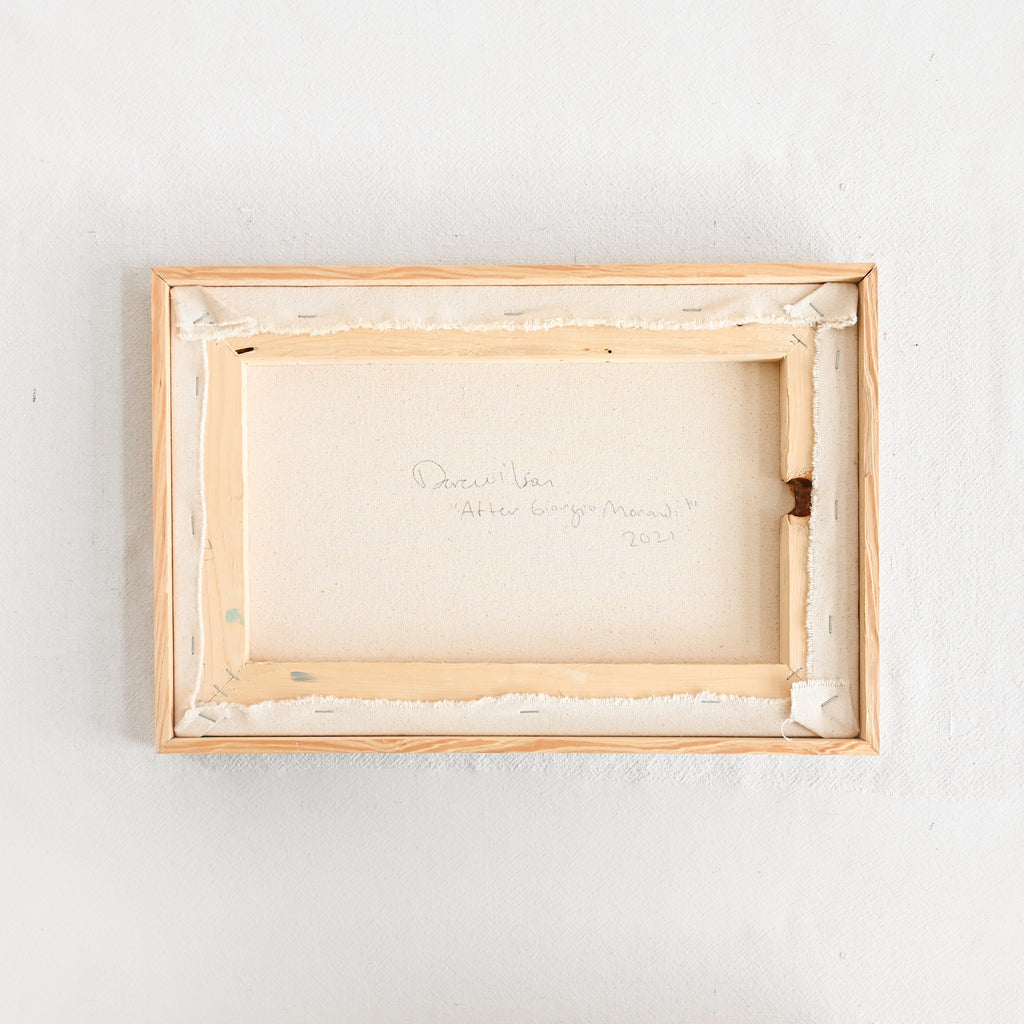 "After Giorgio Morandi"
2021